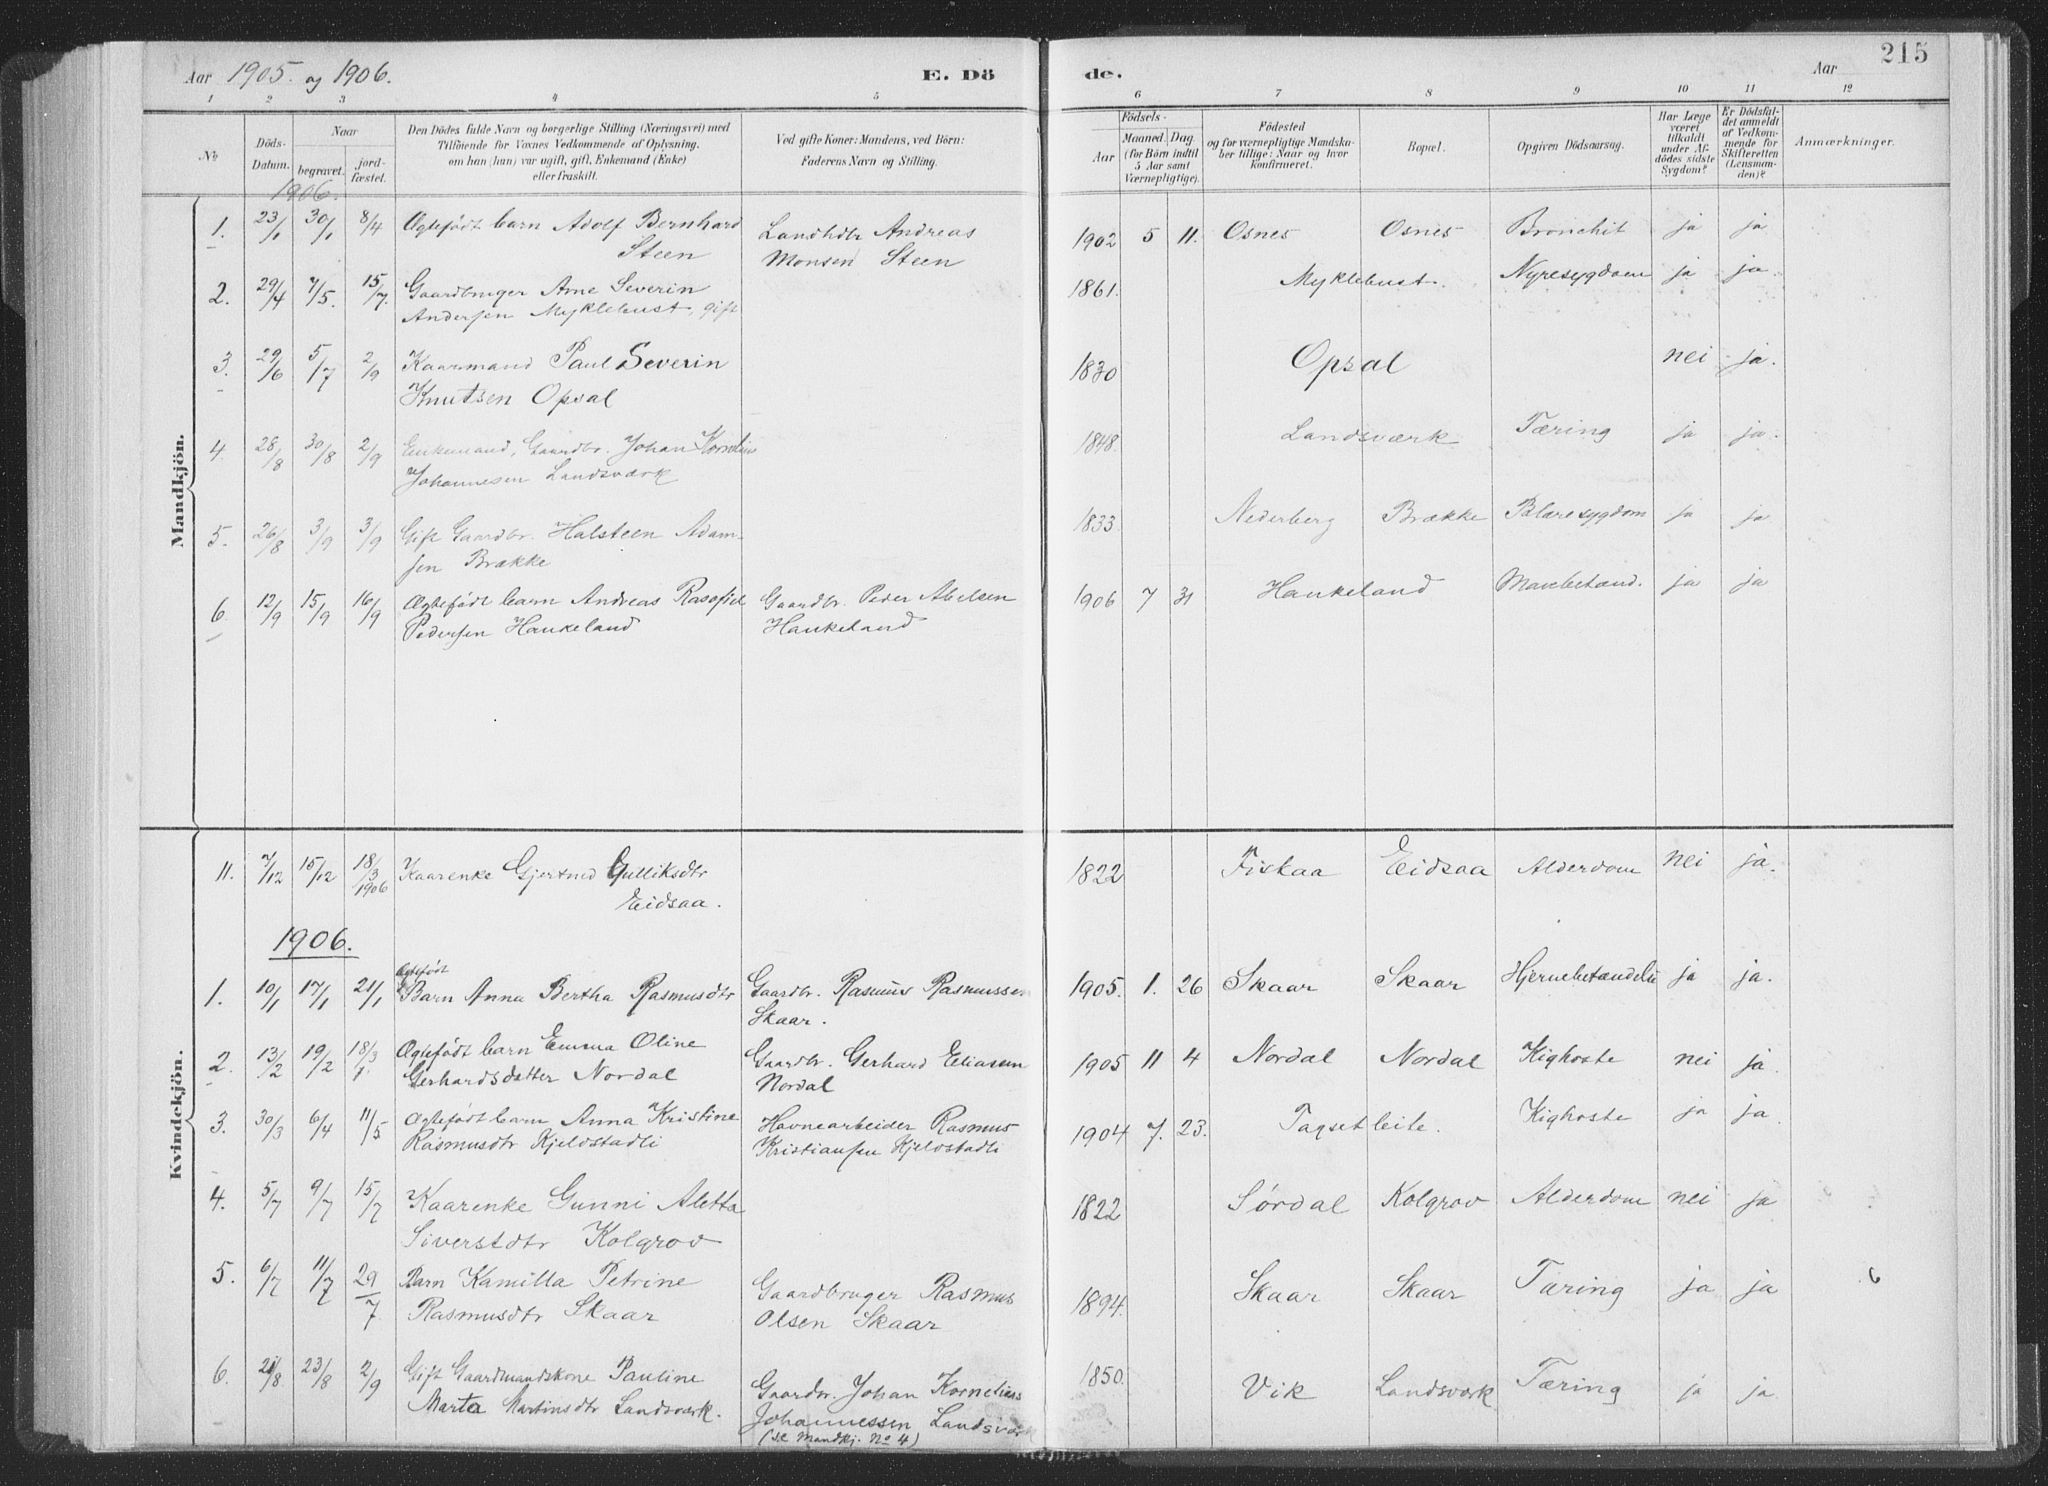 Aar 1905. og 1906.
E. Dö
de.
Aar
215
1 2 3 4 5 6 7 8 9 10 11 12
No
Döds-Datum.
Naar
begravet.
jord-fæstet.
Den Dödes fulde Navn og borgerlige Stilling (Næringsvei) med
Tilföiende for Voxnes Vedkommende af Oplysning,
om han (hun) var ugift, gift, Enkemand (Enke)
eller fraskilt.
Ved gifte Koner: Mandens, ved Börn:
Faderens Navn og Stilling.
Födsels-
Aar
Maaned. Dag
(for Börn indtil
5 Aar samt
Værnepligtige).
Födested
og for værnepligtige Mandska-
ber tillige: Naar og hvor
konfirmeret.
Bopæl.
Opgiven Dödsaarsag.
Har Læge
været
tilkaldt
under Af-
dödes sidste
Sygdom?
Er Dödsfal-
det anmeldt
af Vedkom-
mende for
Skifteretten
(Lensman-
den)?
Anmærkninger.
Mandkjön.
1906.
1. 23/1 30/1 8/4 Ægtefödt barn Adolf Bernhard Landhdlr Andreas 1902 5 11. Osnes Osnes Bronchit ja ja
Steen Monsen Steen
2. 29/4 7/5. 15/7. Gaardbruger Arne Severin 1861. Myklebust. Nyresygdom ja ja.
Andersen Myklebust, gift
3. 29/6 5/7 2/9 Kaarmand Paul Severin 1830 Opsal nei ja.
Knutsen Opsal
4. 28/8 30/8 2/9 Enkemand, Gaardbr. Johan Kornelius 1848. Landsværk Tæring ja ja.
Johannesen Landsværk
5. 26/8 3/9 3/9 Gift Gaardbr. Halsteen Adam- 1833. Nederberg Brække Blæresygdom ja ja
sen Brække
6. 12/9 15/9 16/9 Ægtefödt barn Andreas Gaardbr. Peder Abelsen 1906 7 31 Haukeland Mavebetænd. ja ja
Pedersen Haukeland Haukeland
Kvindekjön.
11. 7/12 15/12 18/3 1906 Kaarenke Gjertrud Gulliksdtr 1822 Fiskaa Eidsaa Alderdom nei ja.
Eidsaa.
1906.
1. 10/1 17/1 21/1 Ægtefödt Barn Anna Bertha Rasmusdtr Gaardbr. Rasmus Rasmussen 1905. 1. 26 Skaar Skaar Hjernebetændelse ja ja.
Skaar.
2. 13/2 19/2 18/3 Ægtefödt barn Emma Oline Gaardbr. Gerhard Eliasen 1905 11 4 Nordal Nordal Kighoste nei ja.
Gerhardsdatter Nordal Nordal
3. 30/3 6/4 11/5 Ægtefödt barn Anna Kristine Havnearbeider Rasmus 1904 7. 23. Tagsetleite. Kighoste ja ja.
Rasmusdtr Kjeldstadli Kristiansen Kjeldstadli
4. 5/7 9/7 15/7 Kaarenke Gunni Aletta 1822 Sørdal Kolgrov Alderdom nei ja
Siverstdtr Kolgrov
5. 6/7 11/7 29/7 Barn Kamilla Petrine Gaardbruger Rasmus 1894. Skaar Skaar Tæring ja ja 6
Rasmusdtr Skaar Olsen Skaar
6. 21/8 23/8 2/9 Gift Gaardmandskone Pauline Gaardbr. Johan Kornelius 1850. Vik Landsværk Tæring ja ja
Marta Martinsdtr Landsværk. Johannessen Landsværk
(se Mandkj. No 4)